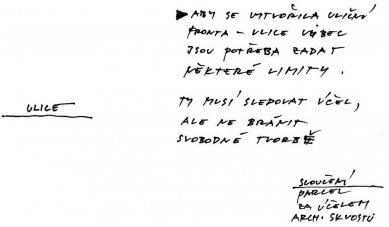 ABY SE VYTVOŘILA ULIČNÍ
FRONTA – ULICE VŮBEC
JSOU POTŘEBA ZADAT
NĚKTERÉ LIMITY.
ULICE
TY MUSÍ SLEDOVAT ÚČEL,
ALE NE BRÁNIT
SVOBODNÉ TVORBĚ
SLOUČENÍ
PARCEL
ZA ÚČELEM
ARCH. SKVOSTŮ